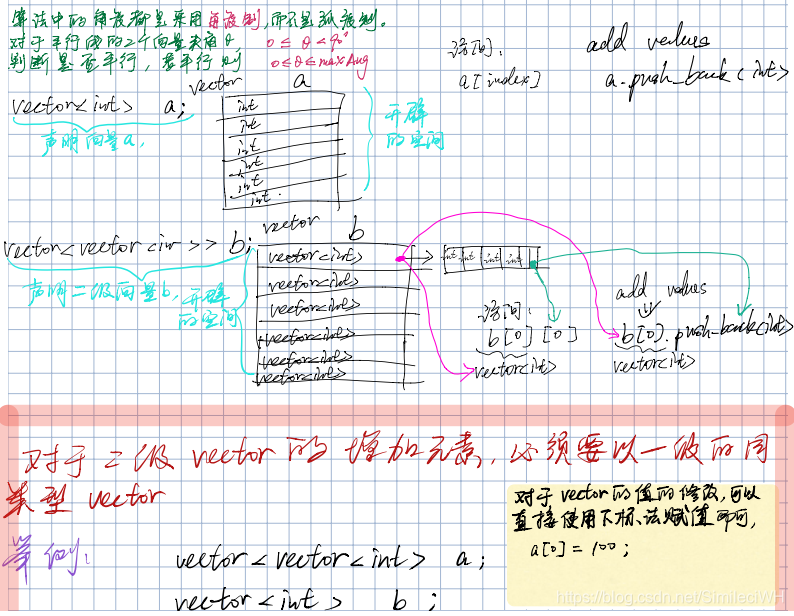 算法中的角度都是采用角度制,而不是弧度制。
对于平行线的2个向量夹角θ, 0 ≤ θ < 90°
判断是否平行, 若平行则 0≤θ≤maxAng
访问:
a[index]
add values
a.push_back(int)
vector<int> a;
声明向量a,
vector a
int
int
int
int
int
int
开辟
的空间
vector<vector<int>> b;
声明二级向量b,
开辟
的空间
vector b
vector<int>
vector<int>
vector<int>
vector<int>
vector<int>
vector<int>
int int int int
访问:
b[0][0]
vector<int>
add values
b[0].push_back(int)
vector<int>
对于二级vector的增加元素,必须要以一级的同
类型vector
举例:
vector<vector<int> a;
vector<int> b;
对于vector的值的修改,可以
直接使用下标法赋值即可,
a[0]=100;
https://blog.csdn.net/SimileciWH